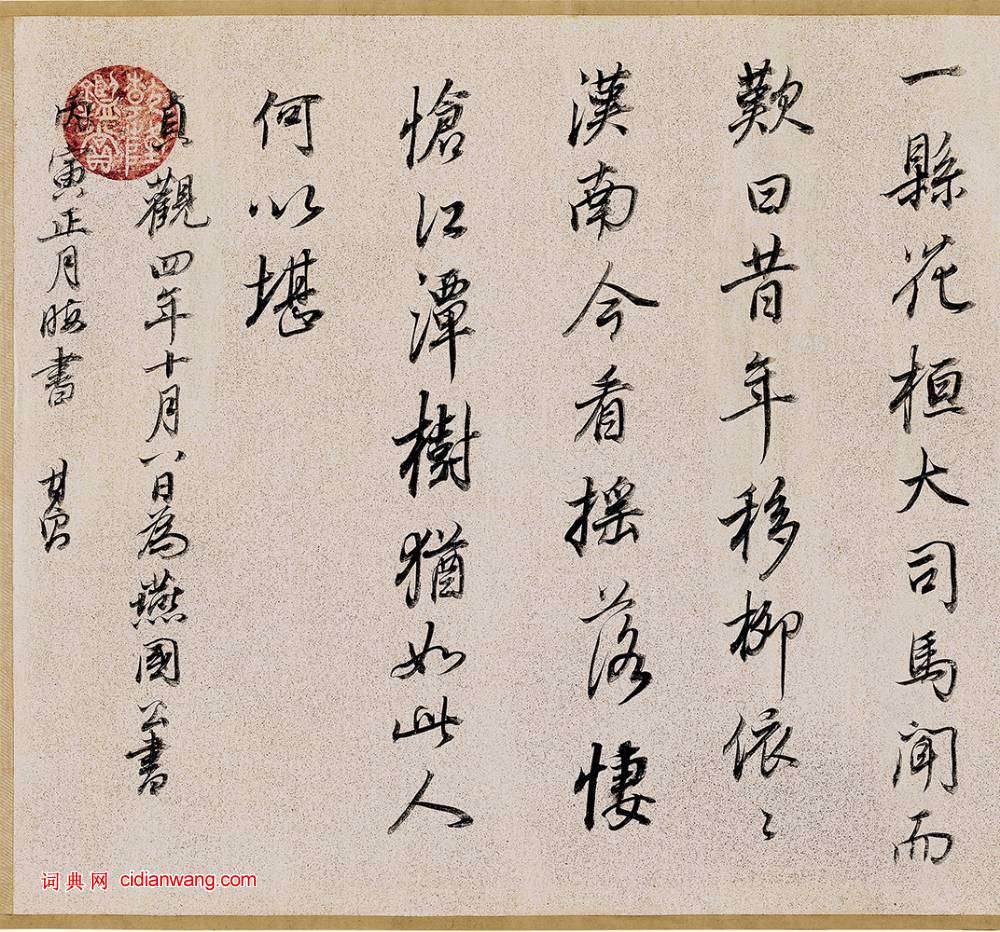 一縣花桓大司馬聞而
歎曰昔年移柳依〻
漢南今看搖落悽
愴江潭樹猶如此人
何以堪
貞觀四年十月八日為燕國公書
丙寅正月晦書 其昌
乾隆鑑賞
词典网 cidianwang.com